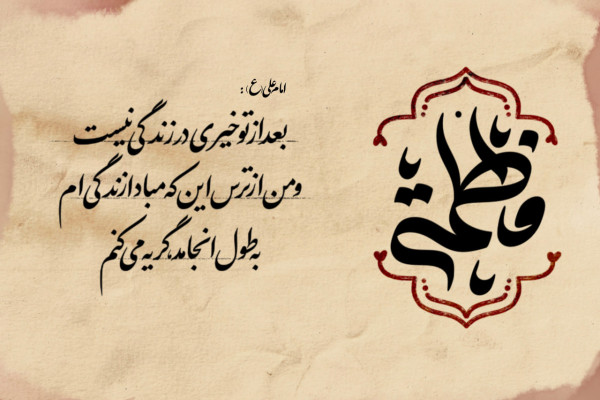 امام علی (ع) :
بعد از تو خیری در زندگی نیست
و من از ترس این که مبادا زندگی ام
به طول انجامد، گریه می کنم
فاطمة